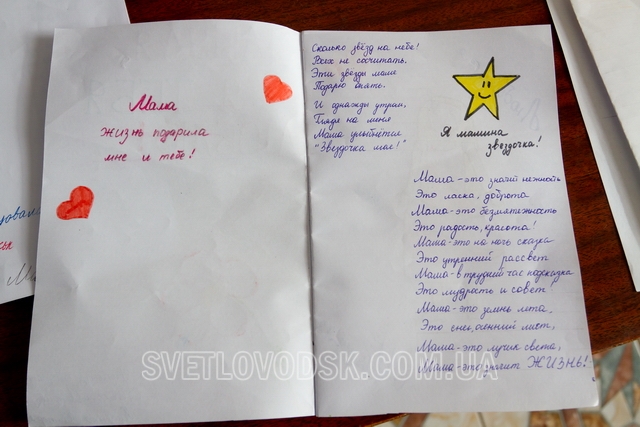 Мама
жизнь подарила
мне и тебе!
Сколько звёзд на небе!
Всех не сосчитать.
Эти звёзды маме
Подарю опять.
И однажды утром,
Глядя на меня
Мама улыбнётся
"Звёздочка моя!"
Я мамина
звездочка!
Мама-это значит нежность
Это ласка, доброта
Мама-это безмятежность
Это радость, красота!
Мама-это на ночь сказка
Это утренний рассвет
Мама-в трудный час подсказка
Это мудрость и совет!
Мама-это зелень лета.
Это снег, осенний лист,
Мама-это лучик света,
Мама-это значит ЖИЗНЬ!
SVETLOVODSK.COM.UA